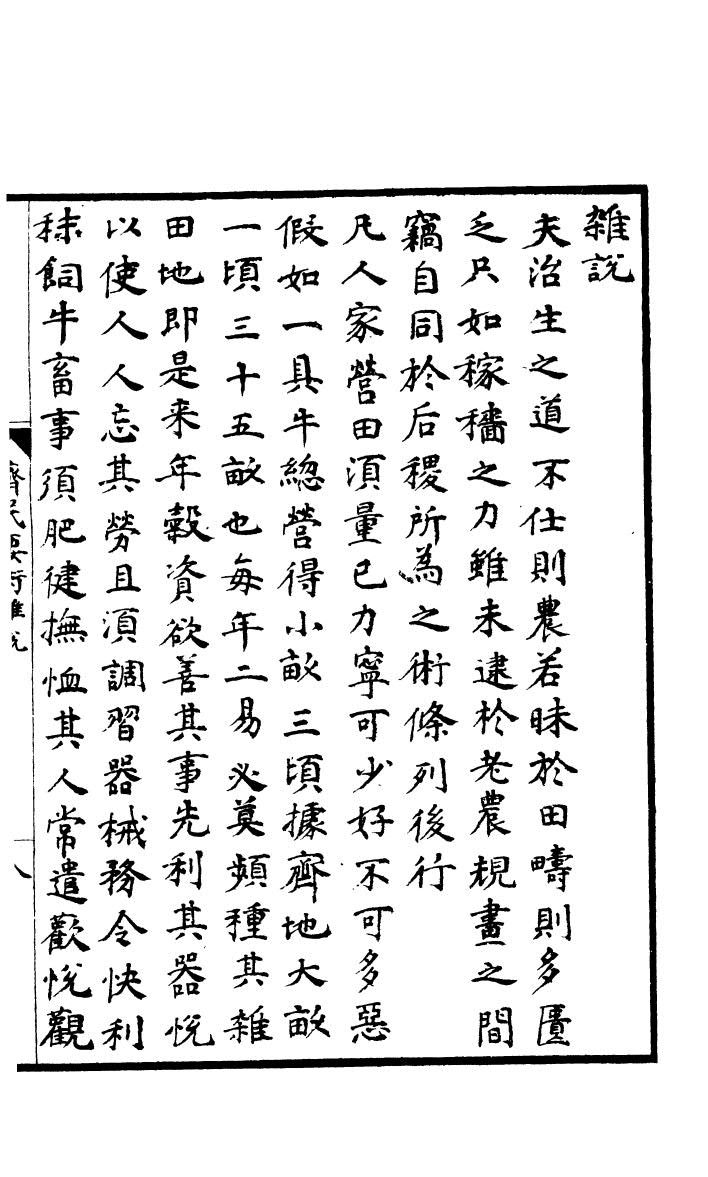 雜說
夫治生之道不仕則農若昧於田疇則多匱
乏只如稼穡之力雖未逮於老農規畫之間
竊自同於后稷所為之術條列後行
凡人家營田湏量己力寧可少好不可多惡
假如一具牛緫營得小畝三頃據齊地大畝
一頃三十五畝也每年二易必莫頻種其雜
田地即是来年穀資欲善其事先利其器悅
以使人人忘其勞且湏調習器械務令快利
秣飼牛畜事須肥健撫恤其人常遣歡悅觀
齊民要術雜說
八